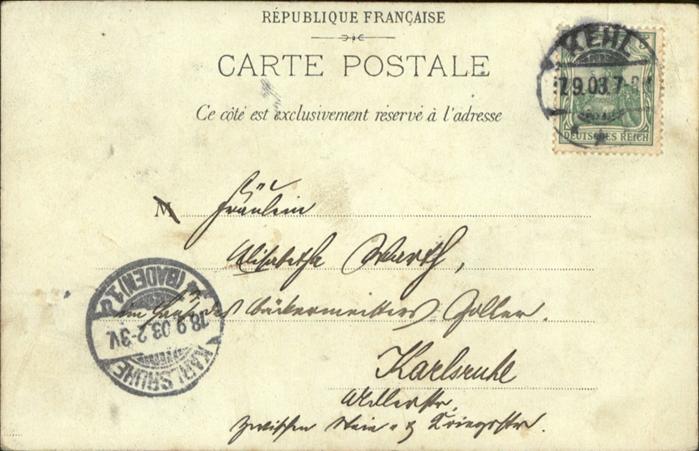 RÉPUBLIQUE FRANÇAISE
CARTE POSTALE
Ce côté est exclusivement réservé à l'adresse
KEHL
7.9.03.7-8
DEUTSCHES REICH
M
Fräulein
Elisabetha Warth,
im Hause des Bäckermeisters Zoller.
Karlsruhe
Adlerstr.
zwischen Stein- & Kriegsstr.
KARLSRUHE (BADEN) 1
18.9.03.2-3V.